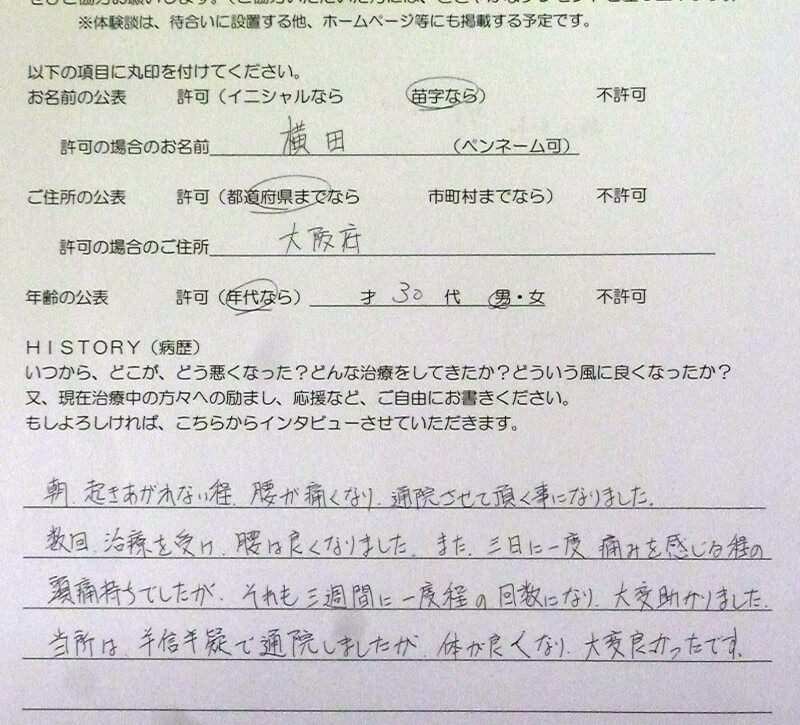 ※体験談は、待合いに設置する他、ホームページ等にも掲載する予定です。
以下の項目に丸印を付けてください。
お名前の公表 許可(イニシャルなら 苗字なら) 不許可
許可の場合のお名前 横田 (ペンネーム可)
ご住所の公表 許可(都道府県までなら 市町村までなら) 不許可
許可の場合のご住所 大阪府
年齢の公表 許可(年代なら) 才 30 代 男・女 不許可
HISTORY(病歴)
いつから、どこが、どう悪くなった?どんな治療をしてきたか?どういう風に良くなったか?
又、現在治療中の方々への励まし、応援など、ご自由にお書きください。
もしよろしければ、こちらからインタビューさせていただきます。
朝、起きあがれない程、腰が痛くなり、通院させて頂く事になりました。
数回、治療を受け、腰は良くなりました。また、三日に一度、痛みを感じる程の
頭痛持ちでしたが、それも三週間に一度程の回数になり、大変助かりました。
当所は、半信半疑で通院しましたが、体が良くなり、大変良かったです。